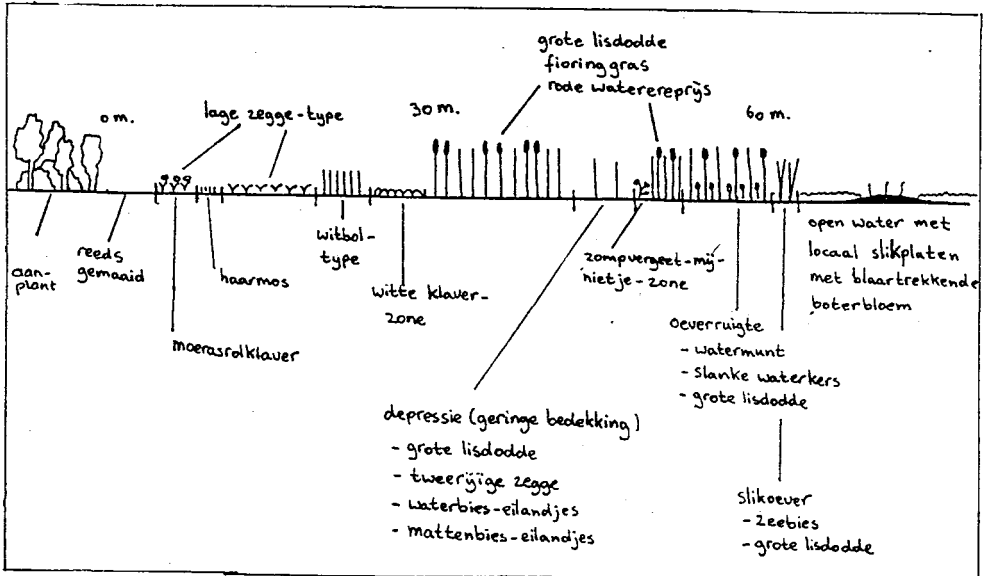 grote lisdodde
fioringgras
rode waterereprijs
0 m.
lage zegge-type
30 m.
60 m.
aan-
plant
reeds
gemaaid
moerasrolklaver
haarmos
witbol-
type
witte klaver-
zone
zompvergeet-mij-
nietje-zone
open water met
locaal slikplaten
met blaartrekkende
boterbloem
Oeverruigte
- watermunt
- slanke waterkers
- grote lisdodde
depressie (geringe bedekking)
- grote lisdodde
- tweerijïge zegge
- waterbies-eilandjes
- mattenbies-eilandjes
slikoever
- zeebies
- grote lisdodde